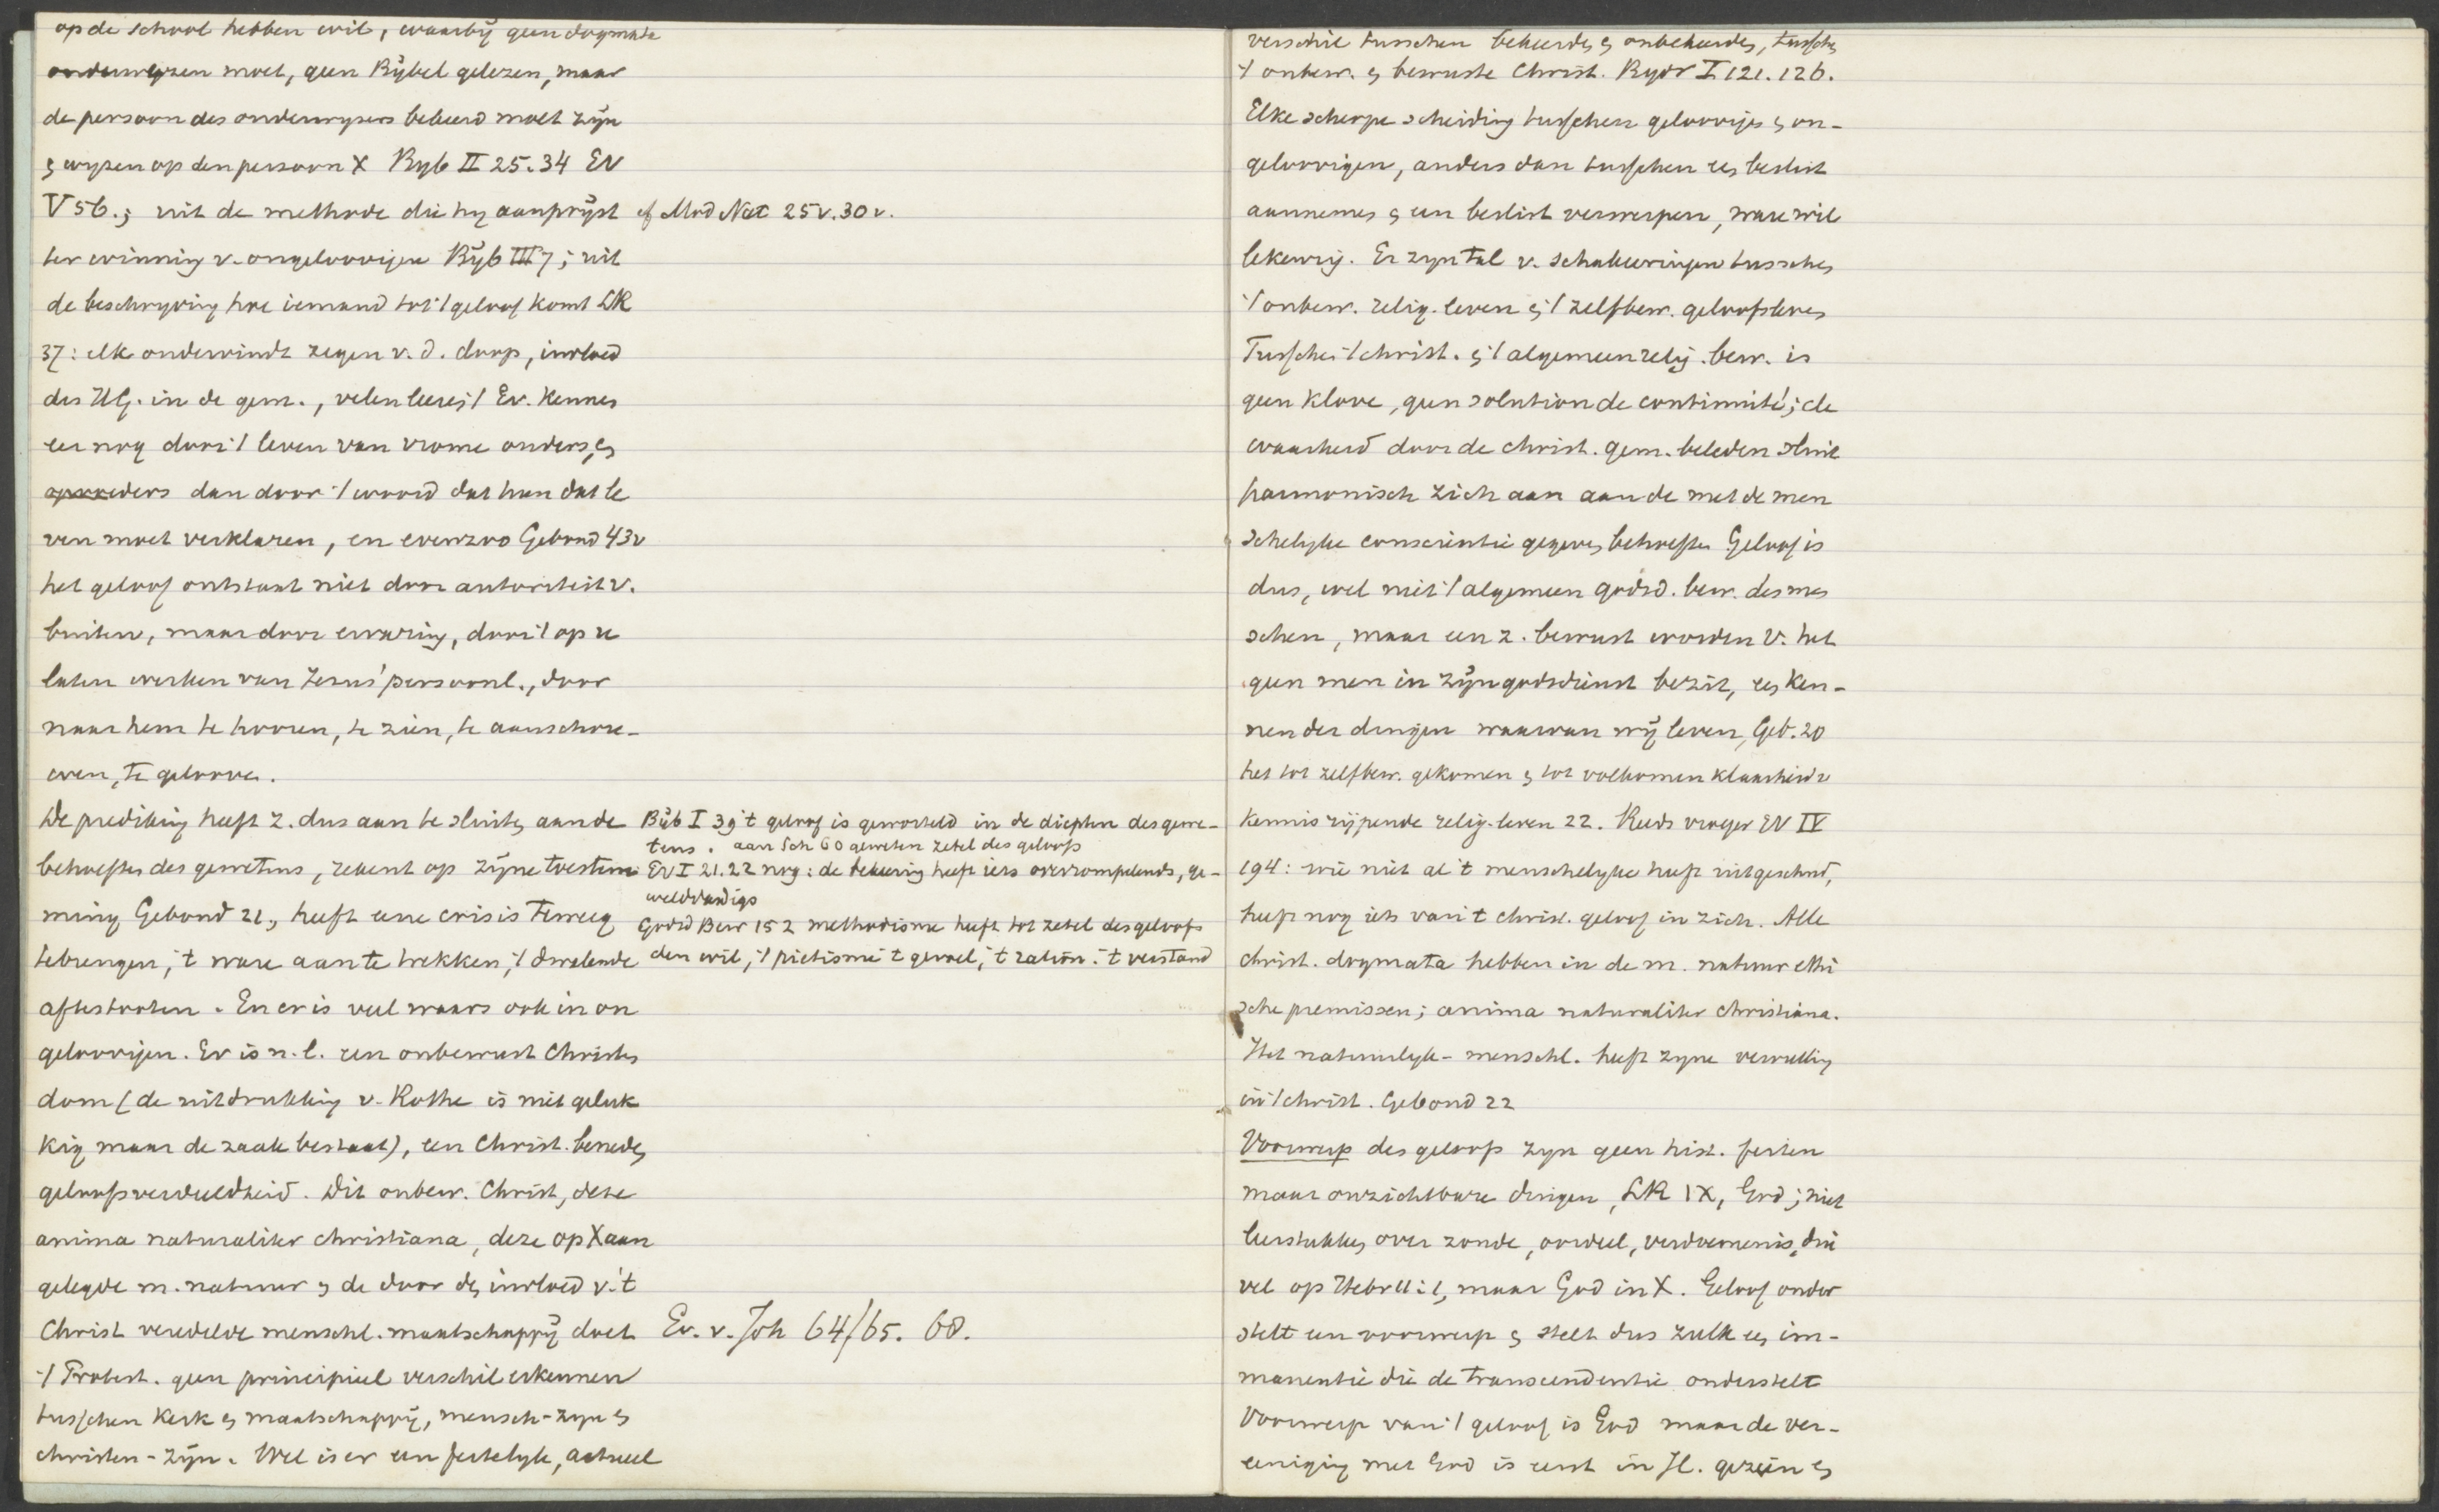 op de school hebben wil, waarbij geen dogmata
onderwezen moet, geen Bijbel gelezen, maar
de persoon des onderwijzers bekeerd moet zijn
& wyzen op den persoon X Byb II 25.34 EV
V 56.; uit de methode die hy aanprijst cf Mod Nat 25v.30v.
ter winning v. ongeloovigen Bÿb III 7; uit
de beschryving hoe iemand tot 't geloof komt LR
37: elk ondervindt zegen v. d. doop, invloed
des HG. in de gem., velen leeren 't Ev. kennen
eer nog door 't leven van vrome ouders, en
opvoeders dan door 't woord dat hun dat le
ven moet verklaren, en evenzoo Gebond 43v
het geloof ontstaat niet door autoriteit v.
buiten, maar door ervaring, door 't op ze
laten werken van Jezus' persoonl., door
naar hem te hooren, te zien, te aanschou-
wen, te gelooven.
De prediking heeft z. dus aan te sluiten aan de
behoeften des gewetens, rekent op zijne toestem
ming Gebond 21, heeft eene crisis teweeg
te brengen, 't ware aan te trekken, 't dwalende
af te stooten. En er is veel waars ook in on
geloovigen. Er is n.l. een onbewust Christen
dom (de uitdrukking v. Rothe is niet geluk
kig maar de zaak bestaat), een Christ. beneden
geloofsverdeeldheid. Dit onbew. Christ, deze
anima naturaliter christiana, deze op X aan
gelegde m. natuur & de door den invloed v. 't
Christ veredelde menschl. maatschappij doet
't Protest. geen principieel verschil erkennen
tusschen Kerk en maatschappij, mensch-zyn en
christen-zijn. Wel is er een feitelijk, actueel
Bÿb I 39 't geloof is geworteld in de diepten des gewe-
tens. aan Sch 60 geweten zetel des geloofs
EV I 21.22 nog: de bekeering heeft iets overrompelends, ge-
welddadigs
Godsd Bew 152 methodisme heeft tot zetel des geloofs
den wil, 't pietisme 't gevoel, 't ration. 't verstand
Ev. v. Joh 64/65. 68.
verschil tusschen bekeerden & onbekeerden, tusschen
't onbew. & bewuste Christ. Bydr I 121.126.
Elke scherpe scheiding tusschen geloovigen & on-
geloovigen, anders dan tusschen een beslist
aannemen & een beslist verwerpen, ware wil
lekeurig. Er zyn tal v. schakeeringen tusschen
't onbew. relig. leven & 't zelfbew. geloofsleven
Tusschen 't christ. & 't algemeen relig. bew. is
geen klove, geen solution de continuité; de
waarheid door de christ. gem. beleden sluit
harmonisch zich aan aan de met de men
schelyke conscientie gegeven behoeften Geloof is
dus, wel niet 't algemeen godsd. bew. des men
schen, maar een z. bewust worden v. het
geen men in zijn godsdienst bezit, een ken-
nen der dingen waarvan wij leven, Geb. 20
het tot zelfbew. gekomen & tot volkomen klaarheid v
kennis rijpende relig. leven 22. Reeds vroeger EV IV
194: wie niet al 't menschelyke heeft uitgeschud,
heeft nog iets van 't christ. geloof in zich. Alle
christ. dogmata hebben in de m. natuur ethi
sche premissen; anima naturaliter christiana.
Het natuurlyk-menschl. heeft zyne vervulling
in 't christ. Gebond 22
Voorwerp des geloofs zyn geen hist. feiten
maar onzichtbare dingen, LR IX, God; niet
leerstukken over zonde, oordeel, verdoemenis, dui
vel op Hebr 11:1, maar God in X. Geloof onder
stelt een voorwerp & stelt dus zulk een im-
manentie die de transcendentie onderstelt
Voorwerp van 't geloof is God maar de ver-
eeniging met God is eerst in JC. gezien en